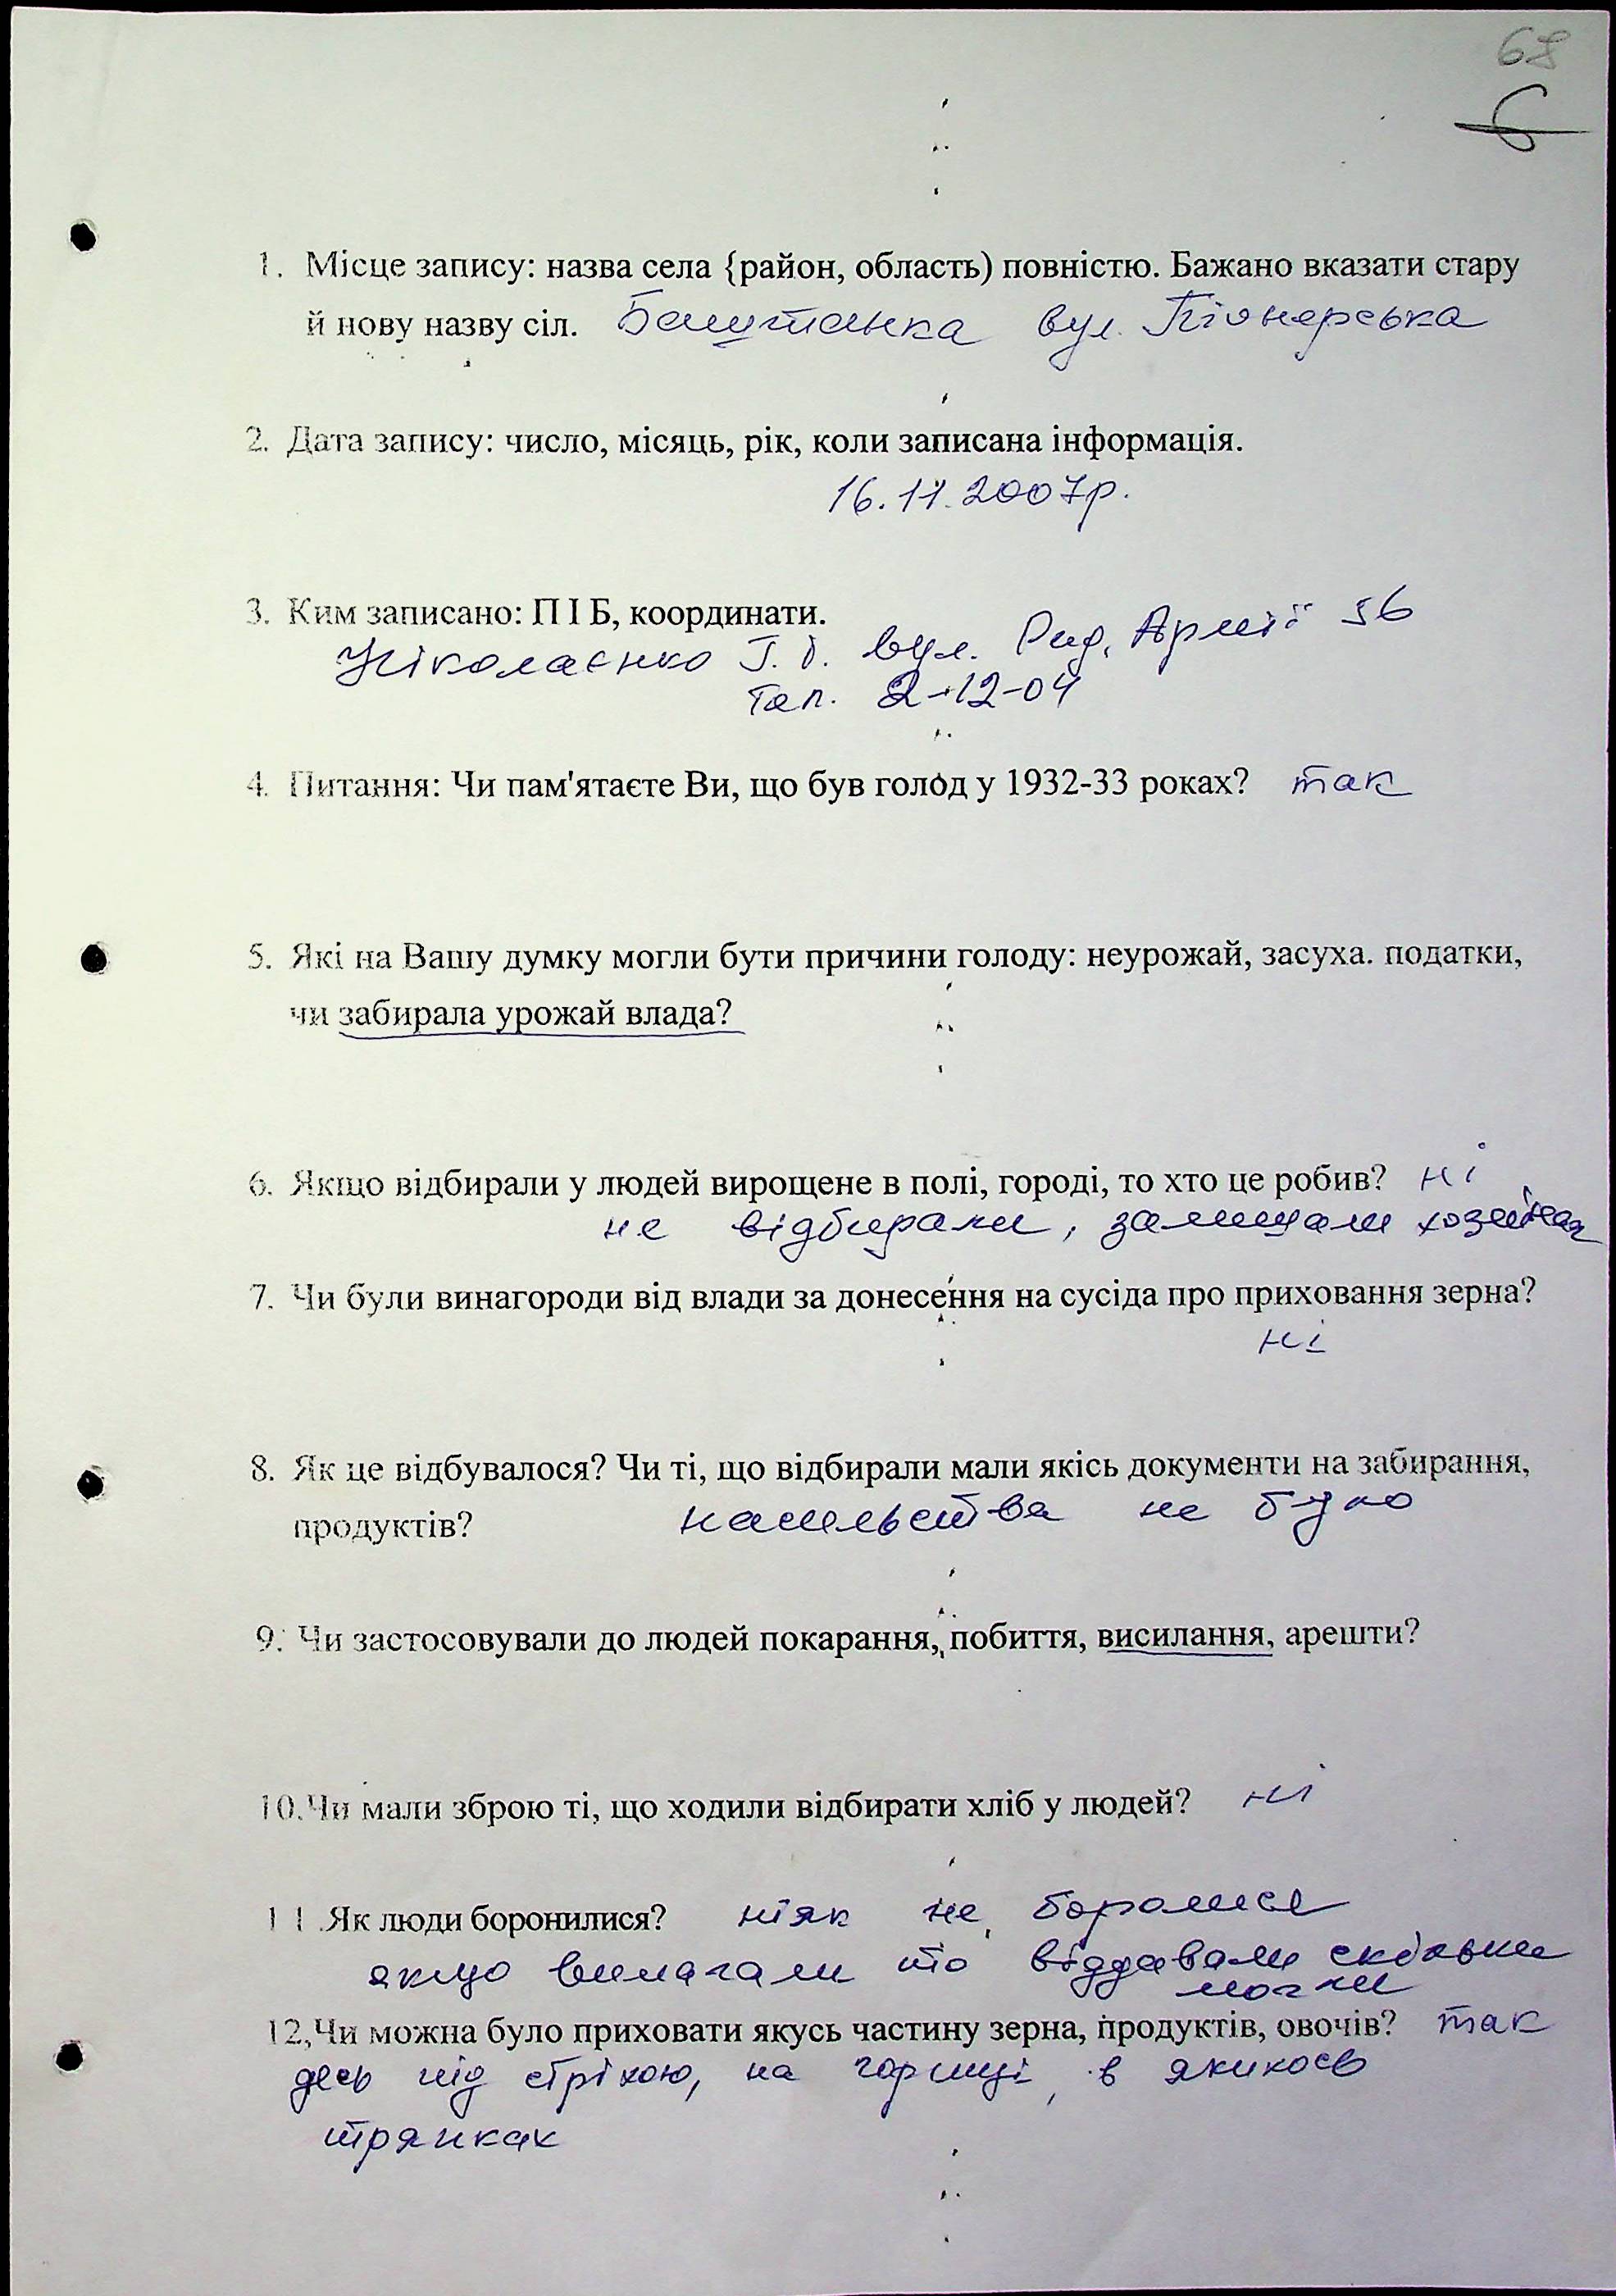 68
6
1. Місце запису: назва села {район, область) повністю. Бажано вказати стару
й нову назву сіл. Баштанка вул. Піонерська
2. Дата запису: число, місяць, рік, коли записана інформація.
16.11.2007р.
3. Ким записано: П І Б, координати.
Ніколаєнко Т. І. вул. Рад. Армії 56
тел. 2-12-04
4. Питання: Чи пам'ятаєте Ви, що був голод у 1932-33 роках? так
5. Які на Вашу думку могли бути причини голоду: неурожай, засуха. податки,
чи забирала урожай влада?
6. Якщо відбирали у людей вирощене в полі, городі, то хто це робив? ні
не відбирали, залишали
7. Чи були винагороди від влади за донесення на сусіда про приховання зерна?
ні
8. Як це відбувалося? Чи ті, що відбирали мали якісь документи на забирання,
продуктів? насильства не було
9. Чи застосовували до людей покарання, побиття, висилання, арешти?
10.Чи мали зброю ті, що ходили відбирати хліб у людей? ні
11.Як люди боронилися? ніяк не боролися
якщо вимагали то віддавали скільки
могли
12,Чи можна було приховати якусь частину зерна, продуктів, овочів? так
десь під стріхою, на горищі, в якихось
тряпках